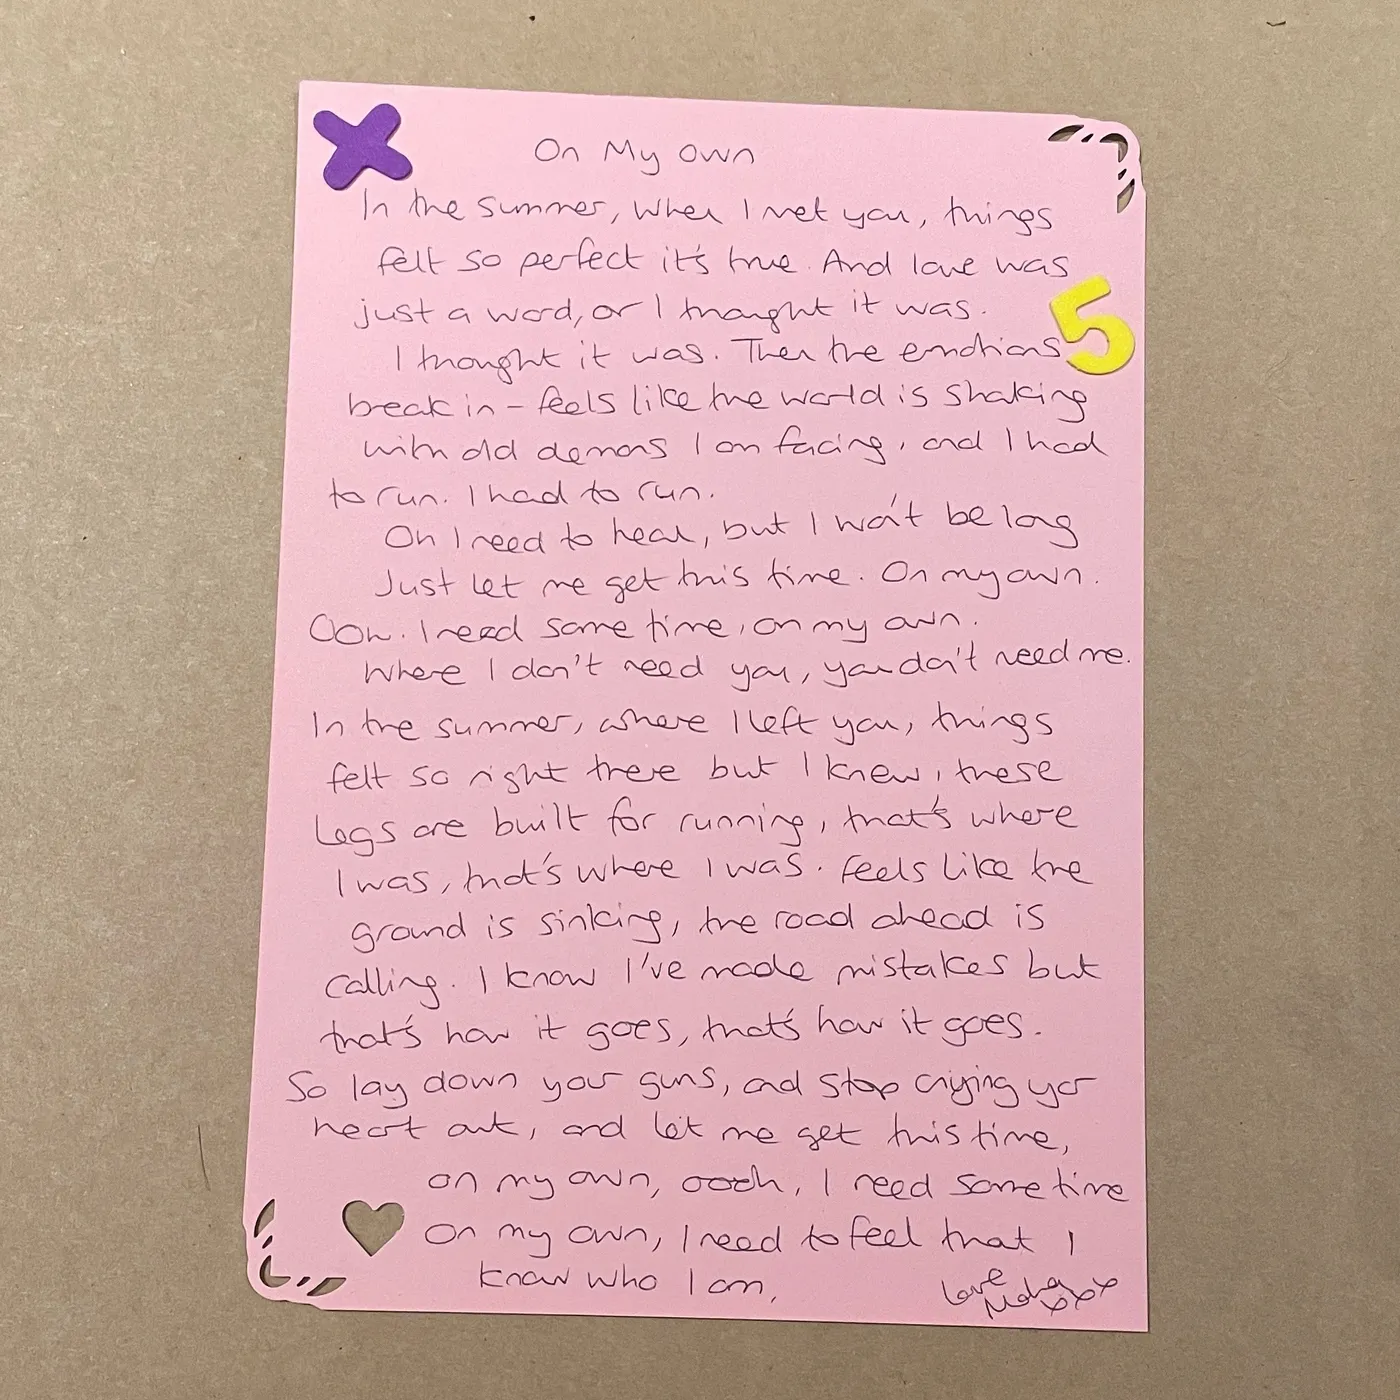 On My Own
In the summer, when I met you, things
felt so perfect it's true. And love was
just a word, or I thought it was.
5
I thought it was. Then the emotions
break in - feels like the world is shaking
with old demons I am facing, and I had
to run. I had to run.
Oh I need to heal, but I won't be long
Just let me get this time. On my own.
Ooh. I need some time, on my own.
Where I don't need you, you don't need me.
In the summer, where I left you, things
felt so right there but I knew, these
legs are built for running, that's where
I was, that's where I was. Feels like the
ground is sinking, the road ahead is
calling. I know I've made mistakes but
that's how it goes, that's how it goes.
So lay down your guns, and stop crying your
heart out, and let me get this time,
on my own, oooh, I need some time
On my own, I need to feel that I
know who I am,
Love
xxx